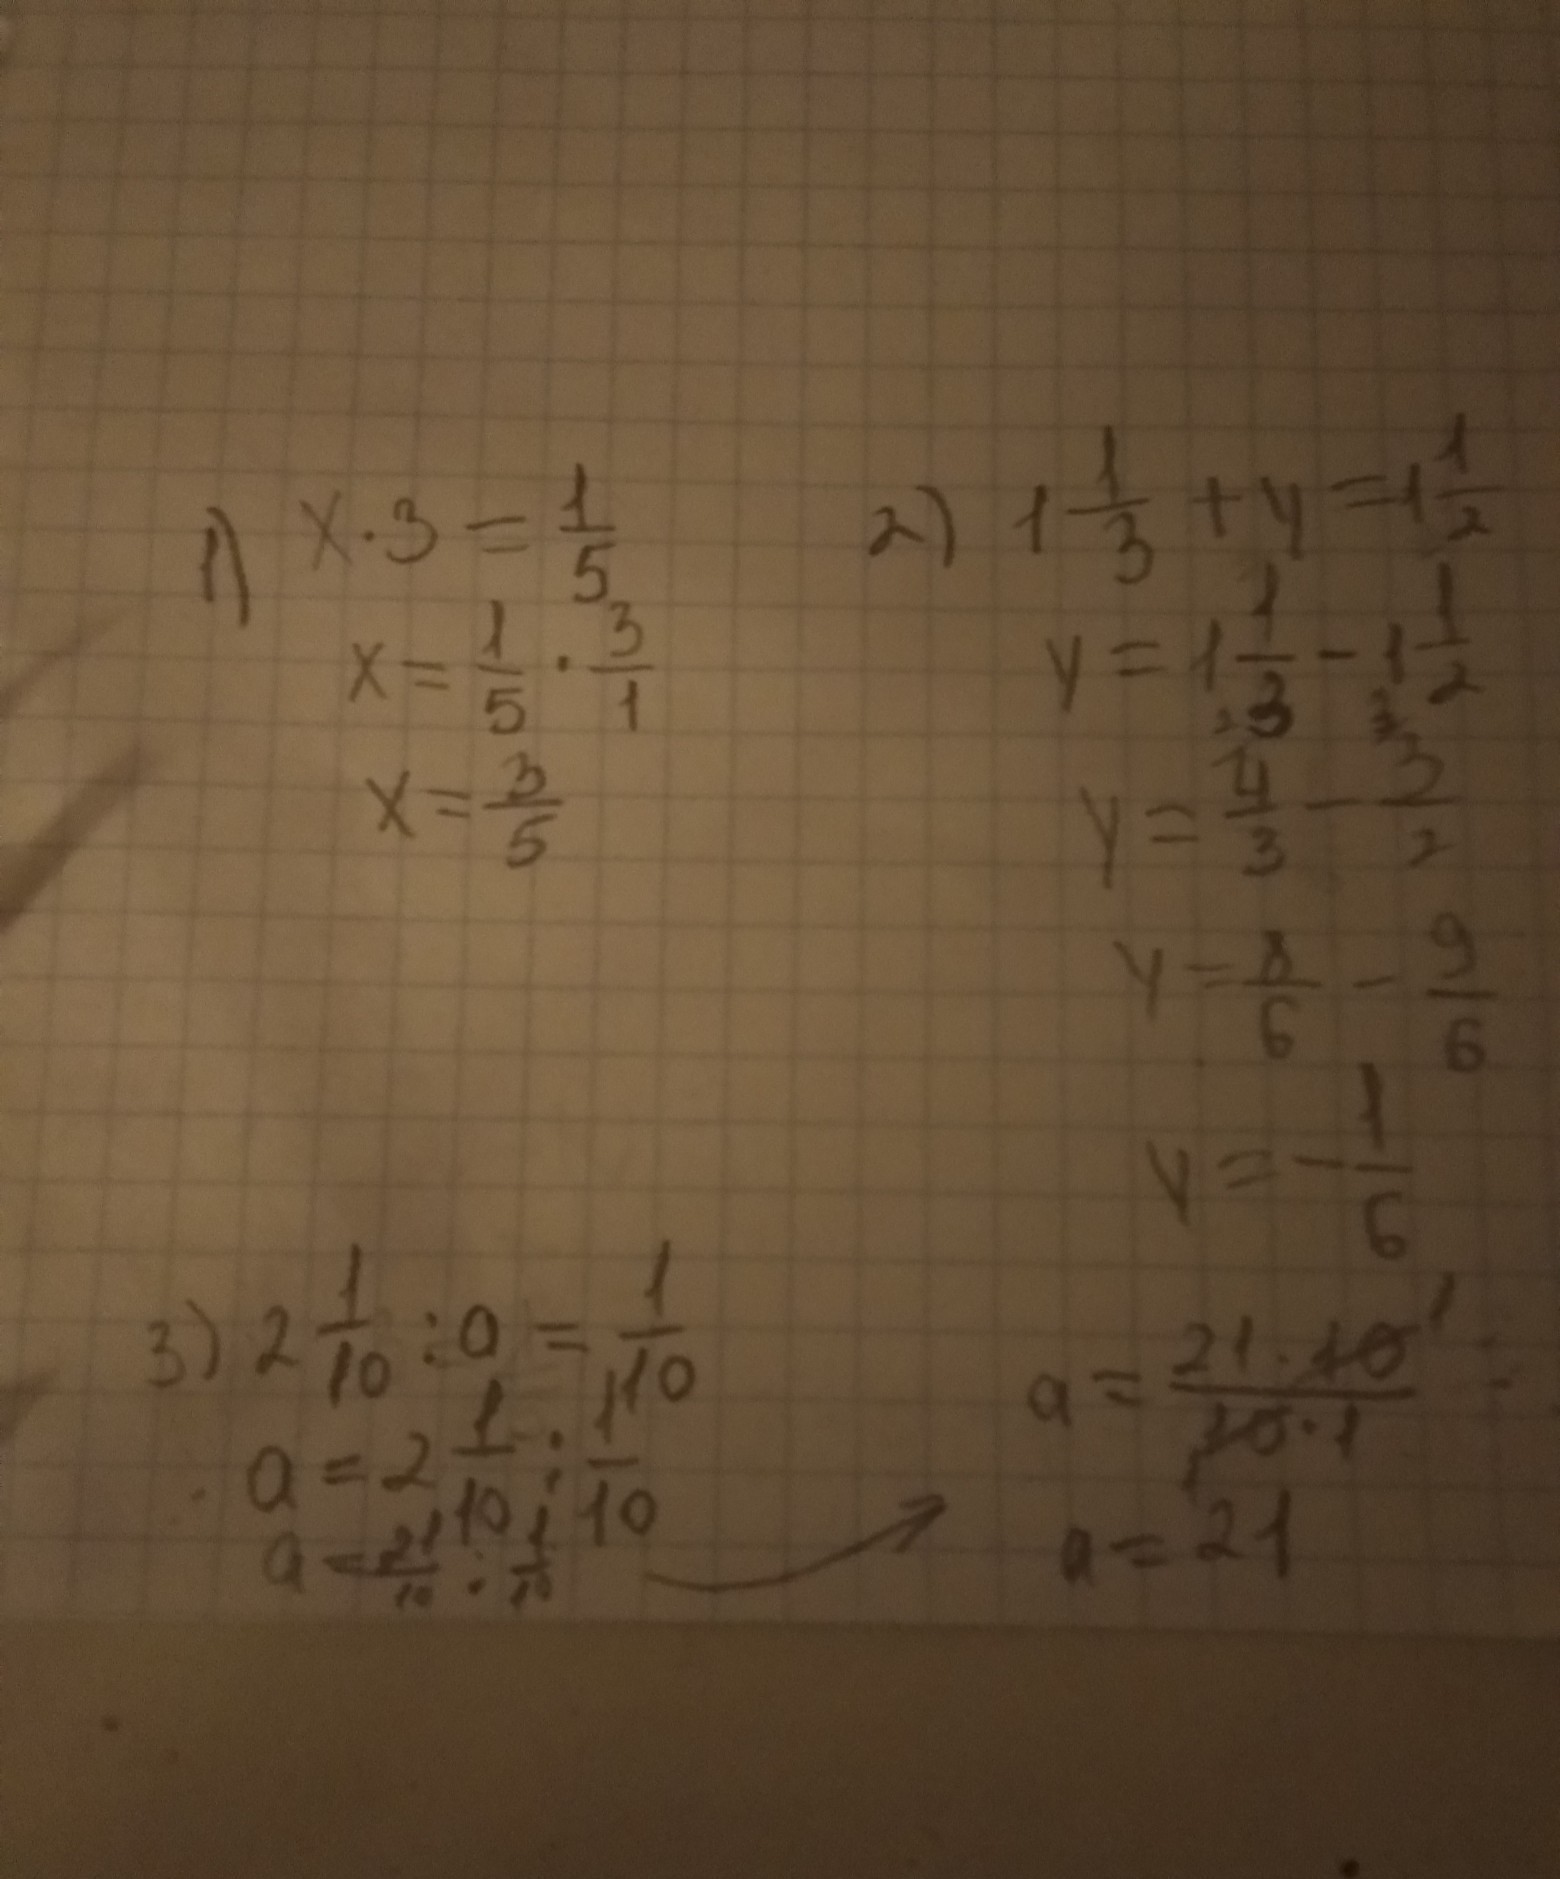 1) x · 3 = 1/5
x = 1/5 · 3/1
x = 3/5
2) 1 1/3 + y = 1 1/2
y = 1 1/3 - 1 1/2
2 3
y = 4/3 - 3/2
y = 8/6 - 9/6
y = - 1/6
3) 2 1/10 : a = 1/10
a = 2 1/10 : 1/10
a = 21/10 : 1/10
a = 21 · 10 1 / 10 · 1 1
a = 21